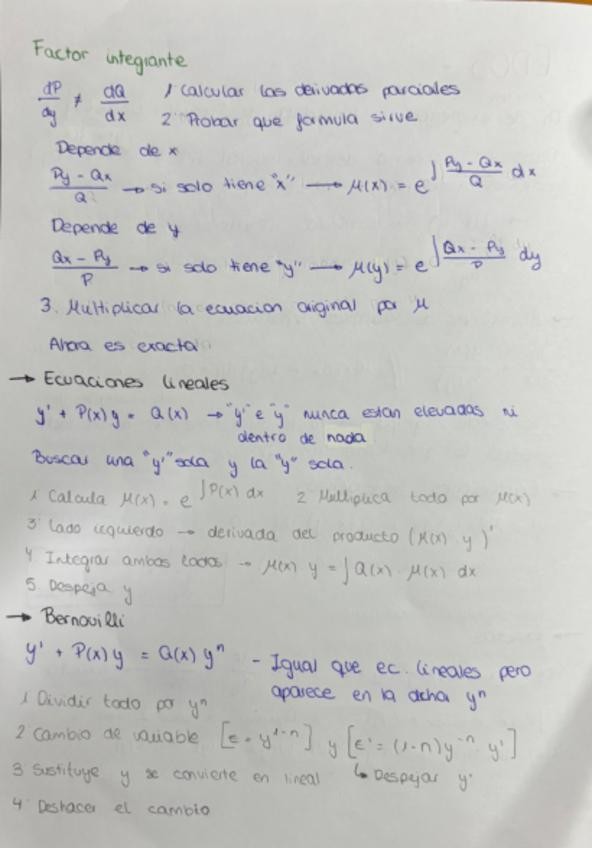 Factor integrante
dP/dy ≠ dQ/dx 1 Calcular las derivadas parciales
2 Probar que formula sirve
Depende de x
Py - Qx / Q → si solo tiene "x" → μ(x) = e^∫ Py - Qx / Q dx
Depende de y
Qx - Py / P → si solo tiene "y" → μ(y) = e^∫ Qx - Py / P dy
3. Multiplicar la ecuacion original por μ
Ahora es exacta
→ Ecuaciones lineales
y' + P(x) y = Q(x) → "y'" e "y" nunca estan elevadas ni
dentro de nada
Buscar una "y'" sola y la "y" sola.
1 Calcula μ(x) = e^∫P(x) dx 2 Multiplica todo por μ(x)
3 Lado izquierdo → derivada del producto (μ(x) y)'
4 Integrar ambos lados → μ(x) y = ∫ Q(x) · μ(x) dx
5. Despeja y
→ Bernouilli
y' + P(x) y = Q(x) yⁿ - Igual que ec. lineales pero
aparece en la dcha yⁿ
1 Dividir todo por yⁿ
2 Cambio de variable [z = y^1-n] y [z' = (1-n) y^-n y']
3 Sustituye y se convierte en lineal ↳ Despejar y'
4 Deshacer el cambio